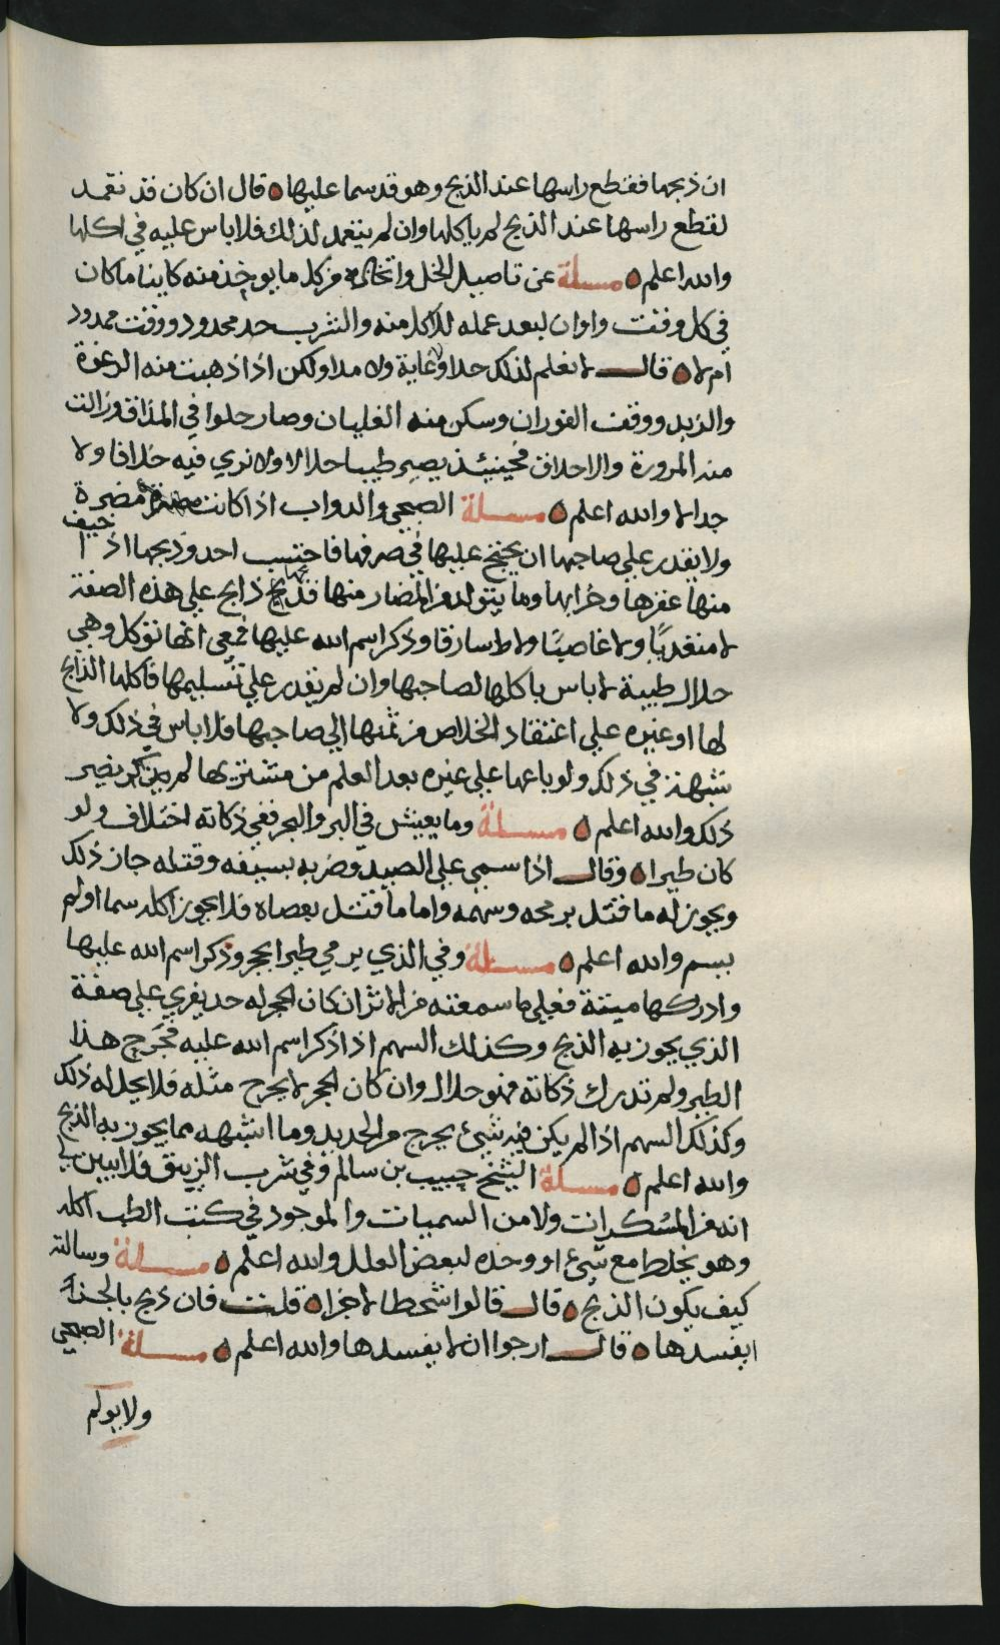 ان ذبحها فقطع راسها عند الذبح وهو قد سما عليها ه قال ان كان قد تعمد
لقطع راسها عند الذبح لم ياكلها وان لم يتعمد لذلك فلا باس عليه في اكلها
والله اعلم ه مسلة عن تاصيل الخل واتخاذه من كل ما يوخذ منه كاينا ما كان
في كل وقت واوان لبعد عمله للاكل منه والشرب حد محدود ووقت ممدود
ام لا ه قال لا نعلم لذلك حدا ولا غاية ولا مدا ولكن اذا ذهبت منه الرغوة
والزبد ووقف الفوران وسكن منه الغليان وصار حلوا في المذاق وزالت
منه المرورة والاحداق فحينيئذ يصير طيبا حلالا ولا نري فيه خلافا ولا
جدالا والله اعلم ه مسلة الصبحي والدواب اذا كانت مضرة
ولا يقدر علي صاحبها ان يحتج عليها في صرفها فاحتسب احد وذبحها اذا خيف
منها عقرها وخرابها وما يتولد من المضار منها فذبحها ذابح علي هذه الصفة
لا متعديا ولا غاصبا ولا سارقا وذكر اسم الله عليها فمعي انها توكل وهي
حلال طيبة لا باس باكلها لصاحبها وان لم يقدر علي تسليمها فاكلها الذابح
لها او غيره علي اعتقاد الخلاص من ثمنها الي صاحبها فلا باس في ذلك ولا
شبهة في ذلك ولو باعها علي غيره بعد العلم من مشتريها لم يضر
ذلك والله اعلم ه مسلة وما يعيش في البر والبحر ففي ذكاته اختلاف ولو
كان طيرا ه وقال اذا سمي علي الصيد وضربه بسيفه وقتله جاز ذلك
ويجوز له ما قتل برمحه وسهمه واما ما قتل بعصاه فلا يجوز اكله سما او لم
يسم والله اعلم ه مسلة وفي الذي يرمي طيرا بحجر وذكر اسم الله عليها
وادركها ميتة فعلي ما سمعته من الاثر ان كان الحجر له حد يفري علي صفة
الذي يجوز به الذبح وكذلك السهم اذا ذكر اسم الله عليه فجرح هذا
الطير ولم تدرك ذكاته فهو حلال وان كان الحجر لا يجرح مثله فلا يحل له ذلك
وكذلك السهم اذا لم يكن فيه شيئ يجرح من الحديد وما اشبهه مما يجوز به الذبح
والله اعلم ه مسلة الشيخ حبيب بن سالم وفي شرب الزيبق فلا يبين لي
انه من المسكرات ولا من السميات والموجود في كتب الطب اكله
وهو يخلط مع شيء او وحده لبعض العلل والله اعلم ه مسلة وسالته
كيف يكون الذبح ه قال قالوا شحطا لا خزا ه قلت فان ذبح بالجذب
ايفسدها ه قال ارجوا ان لا يفسدها والله اعلم ه مسلة الصبحي
ولا يولم